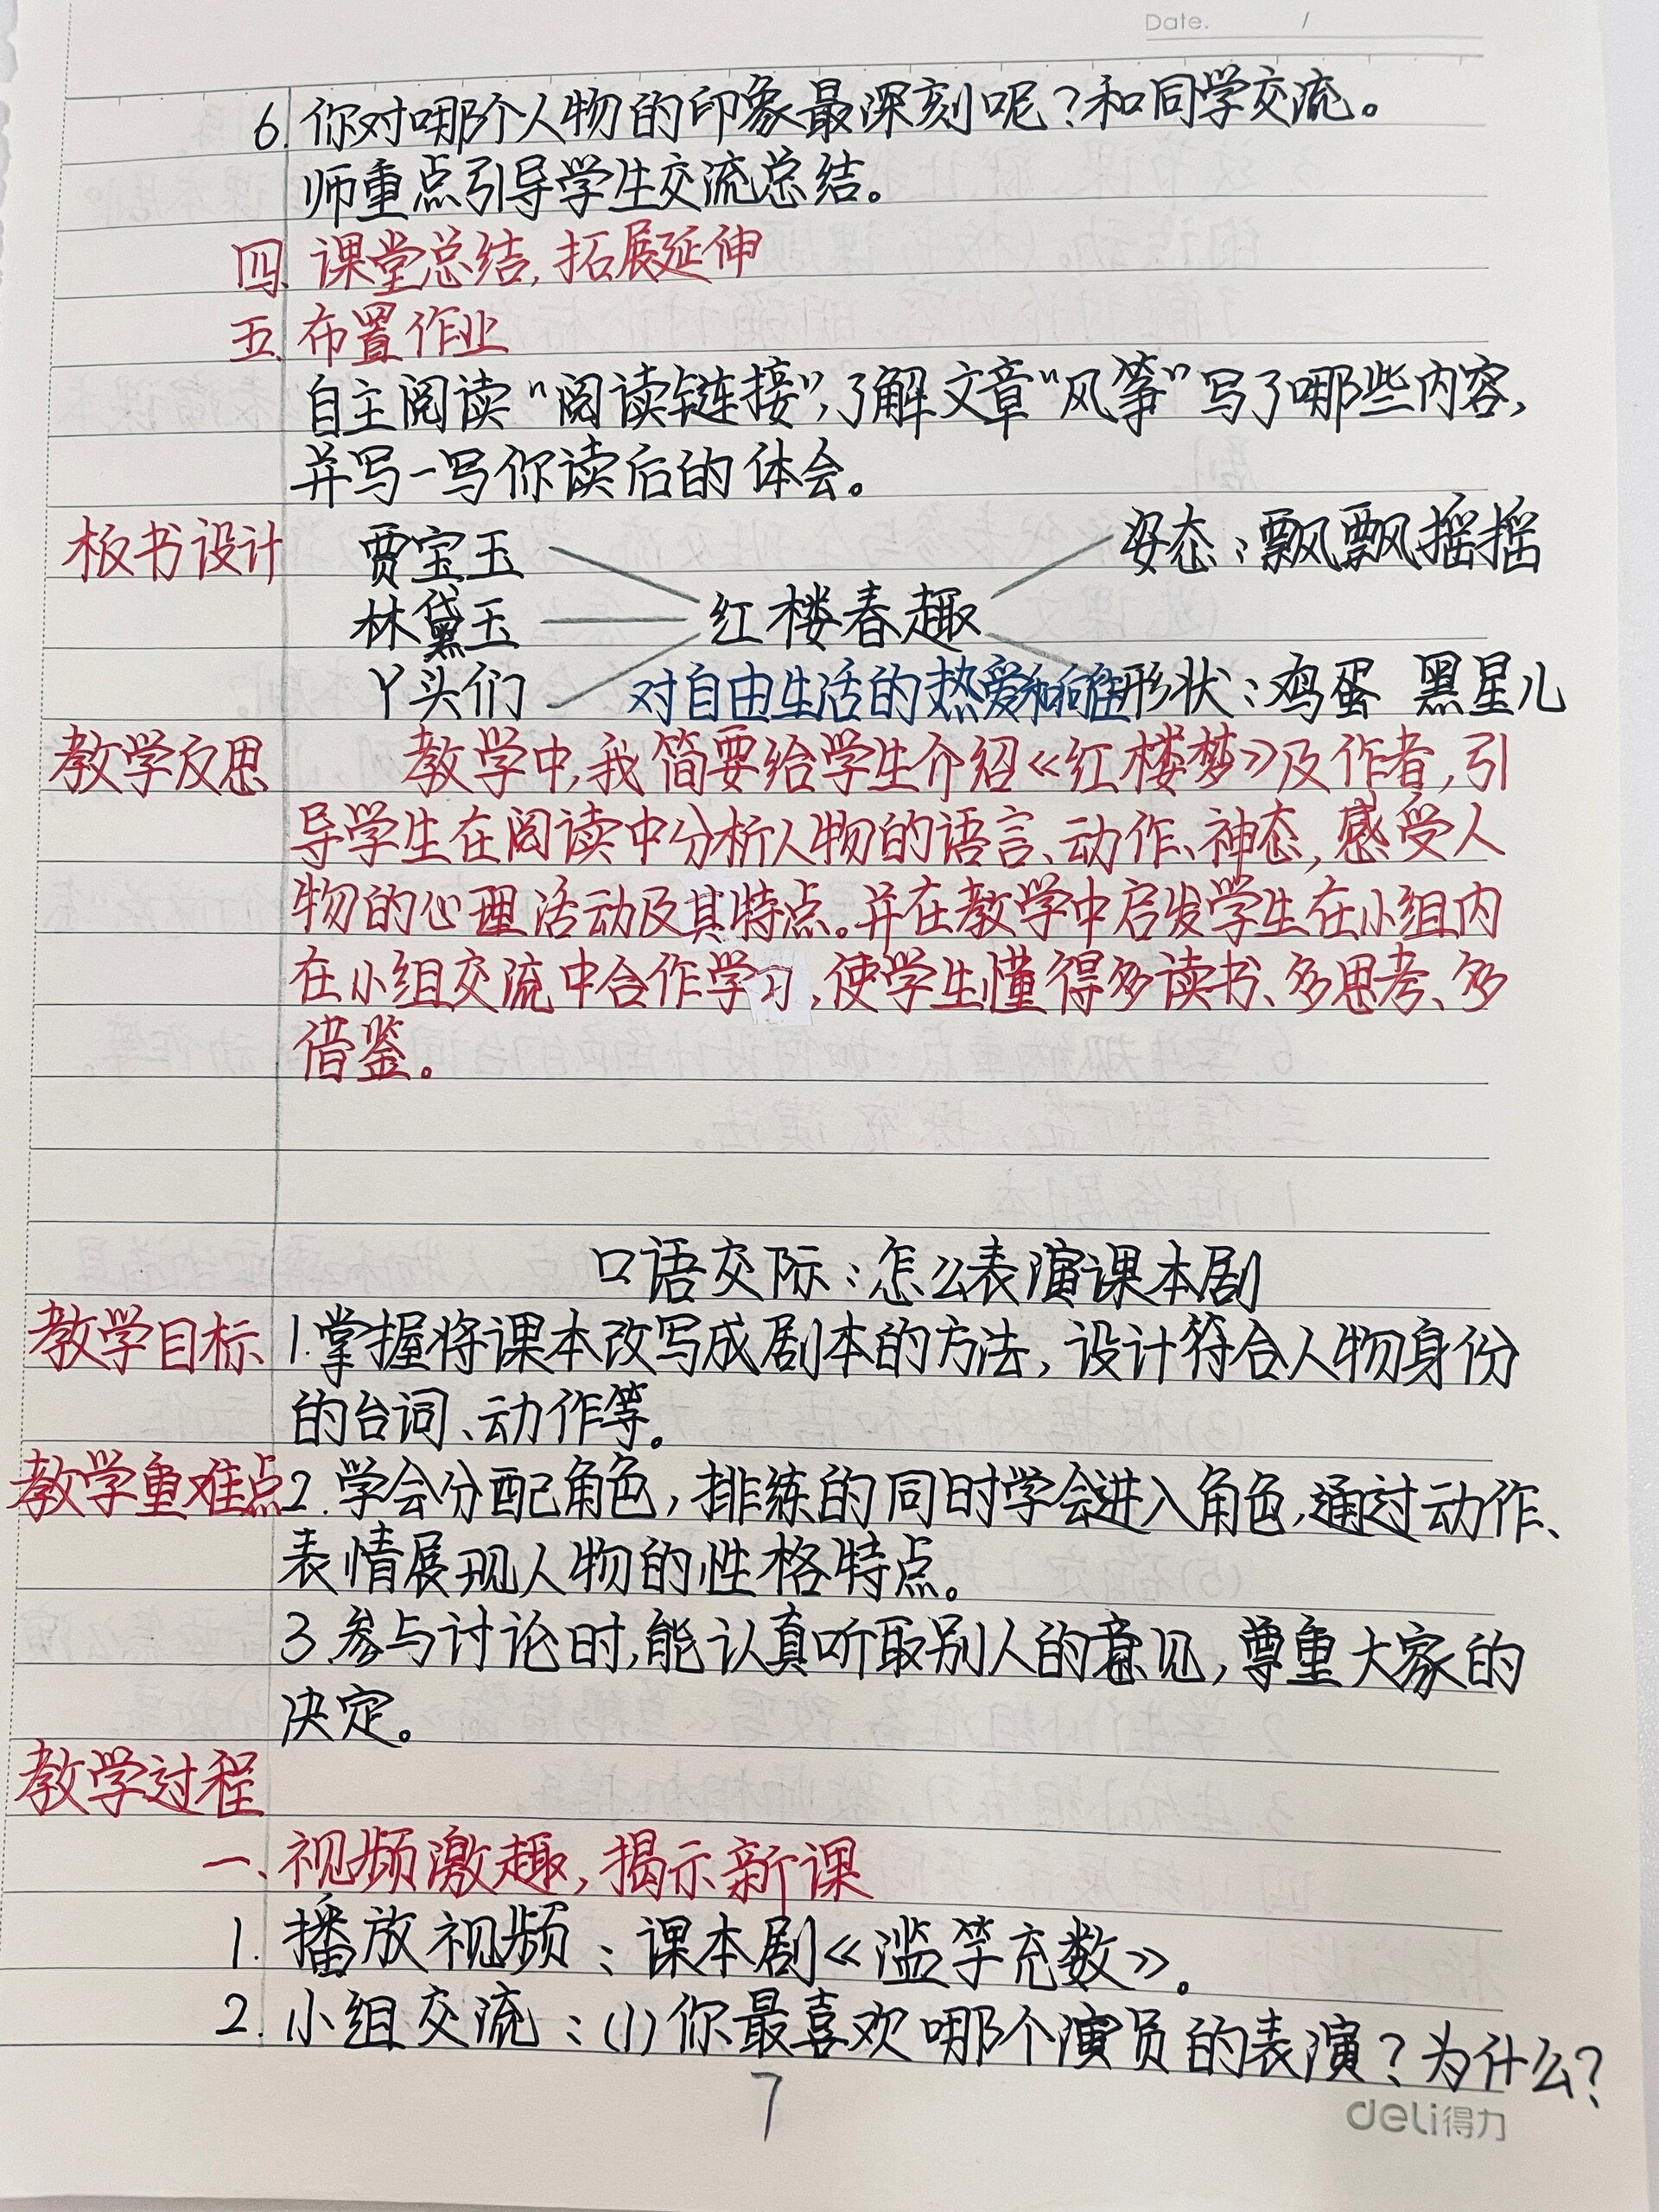 Date. /
6. 你对哪个人物的印象最深刻呢?和同学交流。
师重点引导学生交流总结。
四、课堂总结,拓展延伸
五、布置作业
自主阅读“阅读链接”,了解文章“风筝”写了哪些内容,
并写一写你读后的体会。
板书设计 贾宝玉 姿态:飘飘摇摇
林黛玉 红楼春趣
丫头们 对自由生活的热爱和向往 形状:鸡蛋 黑星儿
教学反思 教学中,我简要给学生介绍《红楼梦》及作者,引
导学生在阅读中分析人物的语言、动作、神态,感受人
物的心理活动及其特点。并在教学中启发学生在小组内
在小组交流中合作学习,使学生懂得多读书、多思考、多
借鉴。
口语交际:怎么表演课本剧
教学目标 1.掌握将课本改写成剧本的方法,设计符合人物身份
的台词、动作等。
教学重难点 2.学会分配角色,排练的同时学会进入角色,通过动作、
表情展现人物的性格特点。
3.参与讨论时,能认真听取别人的意见,尊重大家的
决定。
教学过程
一、视频激趣,揭示新课
1. 播放视频:课本剧《滥竽充数》。
2. 小组交流:(1)你最喜欢哪个演员的表演?为什么?
7
deli得力